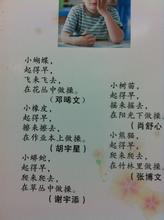 小蝴蝶，
起得早，
飞来飞去，
在花丛中做操。
（邓晞文）
小橡皮，
起得早，
擦来擦去，
在作业本上做操。
（胡宇星）
小蟒蛇，
起得早，
爬来爬去，
在草丛中做操。
（谢宇添）
小树苗，
起得早，
摇来摇去，
在阳光下做操。
（肖舒心）
小熊猫，
起得早，
爬来爬去，
在竹林里做操。
（张博文